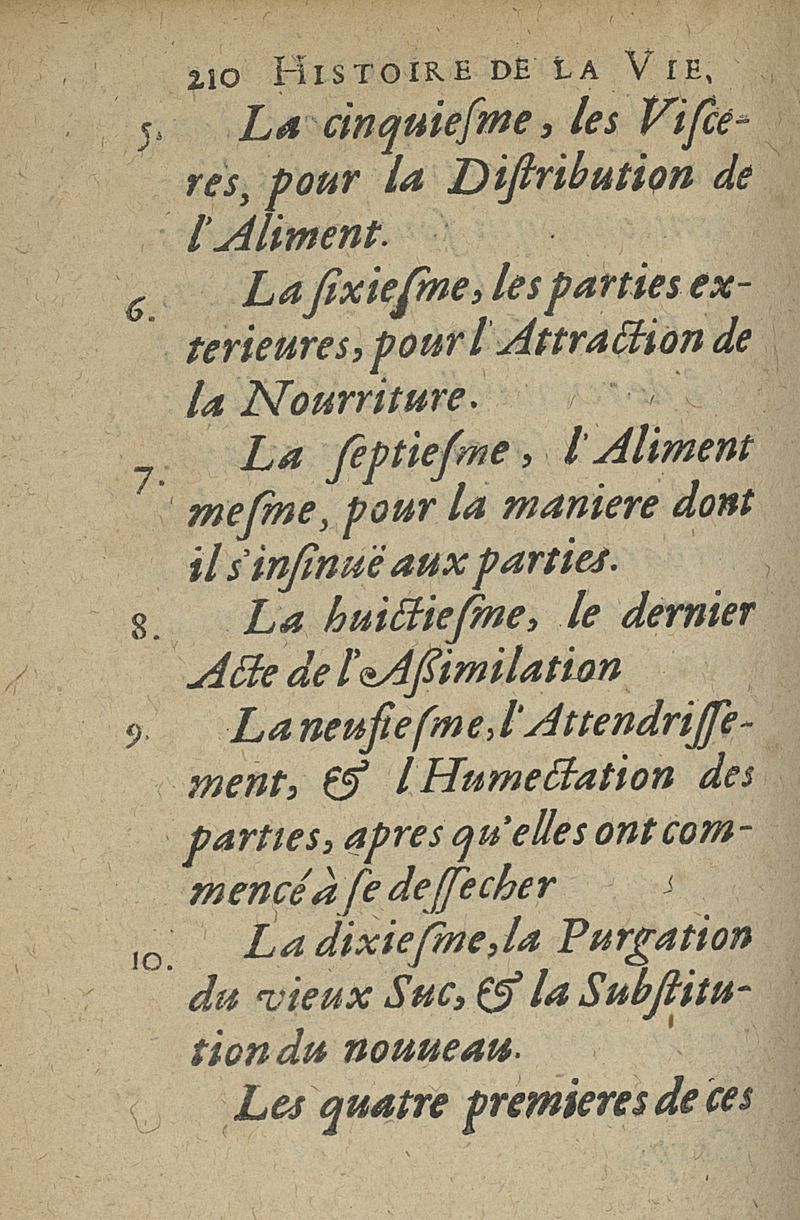 210 HISTOIRE DE LA VIE,
5. La cinquieſme, les Viſce-
res, pour la Diſtribution de
l'Aliment.
6. La ſixieſme, les parties ex-
terieures, pour l'Attraction de
la Nourriture.
7. La ſeptieſme, l'Aliment
meſme, pour la maniere dont
il s'inſinuë aux parties.
8. La huictieſme, le dernier
Acte de l'Aſſimilation
9. La neufieſme, l'Attendriſſe-
ment, & l'Humectation des
parties, apres qu'elles ont com-
mencé à ſe deſſecher
10. La dixieſme, la Purgation
du vieux Suc, & la Subſtitu-
tion du nouueau.
Les quatre premieres de ces